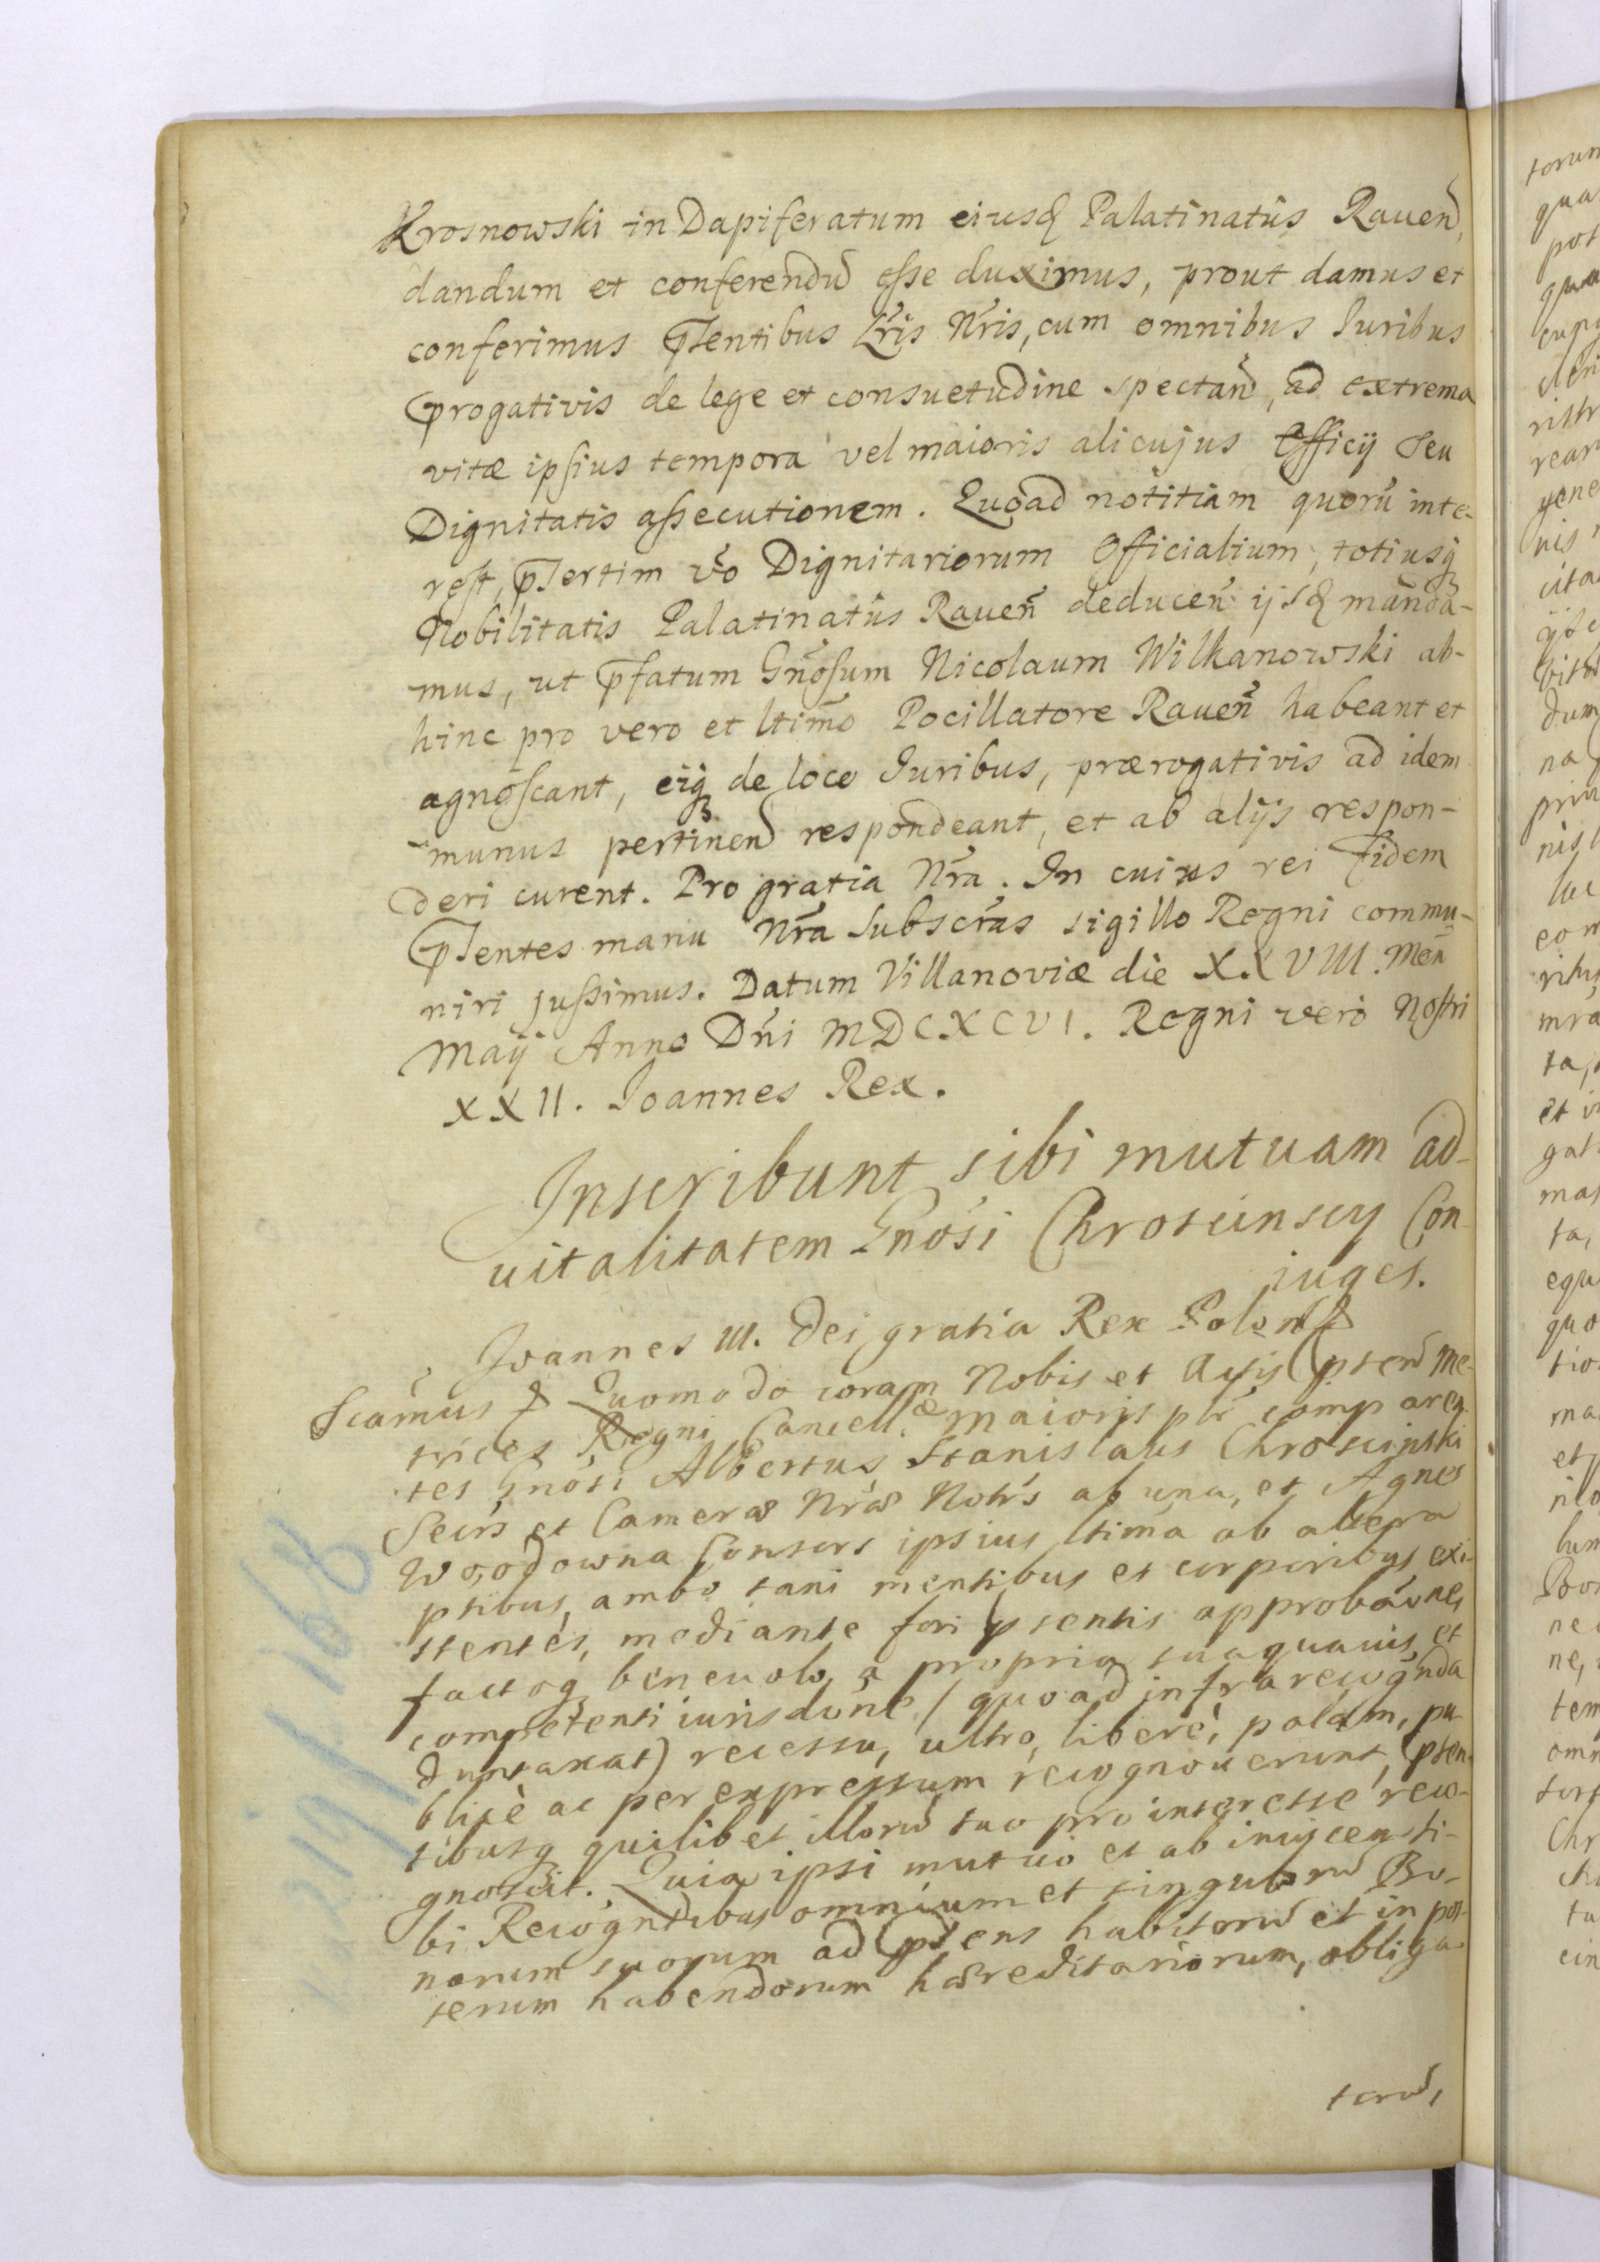 Krosnowski in Dapiferatum eiusq Palatinatus Rauen,
dandum et conferendū esse duximus, prout damus et
conferimus pñtentibus Lris Nris, cum omnibus Iuribus
progativis de lege et consuetudine spectañ, ad extrema
vitæ ipsius tempora vel maioris alicujus Officij seu
Dignitatis assecutionem. Quoad notitiam quorū inte-
rest, psertim vo Dignitariorum Officialium, totiusq
Nobilitatis Palatinatus Raueñ deduceñ ijsq manda-
mus, ut pfatum Gnosum Nicolaum Wilkanowski ab-
hinc pro vero et ltimo Pocillatore Raueñ habeant et
agnoscant, eiq de loco Iuribus, prærogativis ad idem
munus pertinen respondeant, et ab alijs respon-
deri curent. Pro gratia Nra. In cuius rei fidem
psentes manu Nra subscras sigillo Regni commu-
niri jussimus. Datum Villanoviæ die XXVIII. Meñ
Maij Anno Dñi MDCXCVI. Regni vero Nostri
XXII. Joannes Rex.
Inscribunt sibi mutuam ad-
uitalitatem Gnosi Chroscinscy Con
iuges.
Joannes III. Dei gratia Rex Polon
Scamus Quomodo coram Nobis et Actis psten Me-
trices Regni Cancell.æ Maioris plr comparen
tes Gnosi Albertus Stanislaus Chroscinski
Secrs et Cameræ Nræ Notrs ab una, et Agnes
Consors ipsius ltima ab altera
ptibus, ambo sani mentibus et corporibus exi-
stentes, mediante fori psentis approbaone,
factoq beneuolo a propria sua quauis et
competenti iurisdone / quoad infra recognda
duntaxat) recessu, ultro, libere, palam, pu
blice ac per expressum recognouerunt, psen-
tibusq quilibet illorū suo pro interesse reco-
gnoscit. Quia ipsi mutuo et ab inuicem si-
bi Recogntibus omnium et singulorū Bo-
norum suorum ad psens habitorū et in pos-
terum habendorum hæreditariorum, obliga-
torū,